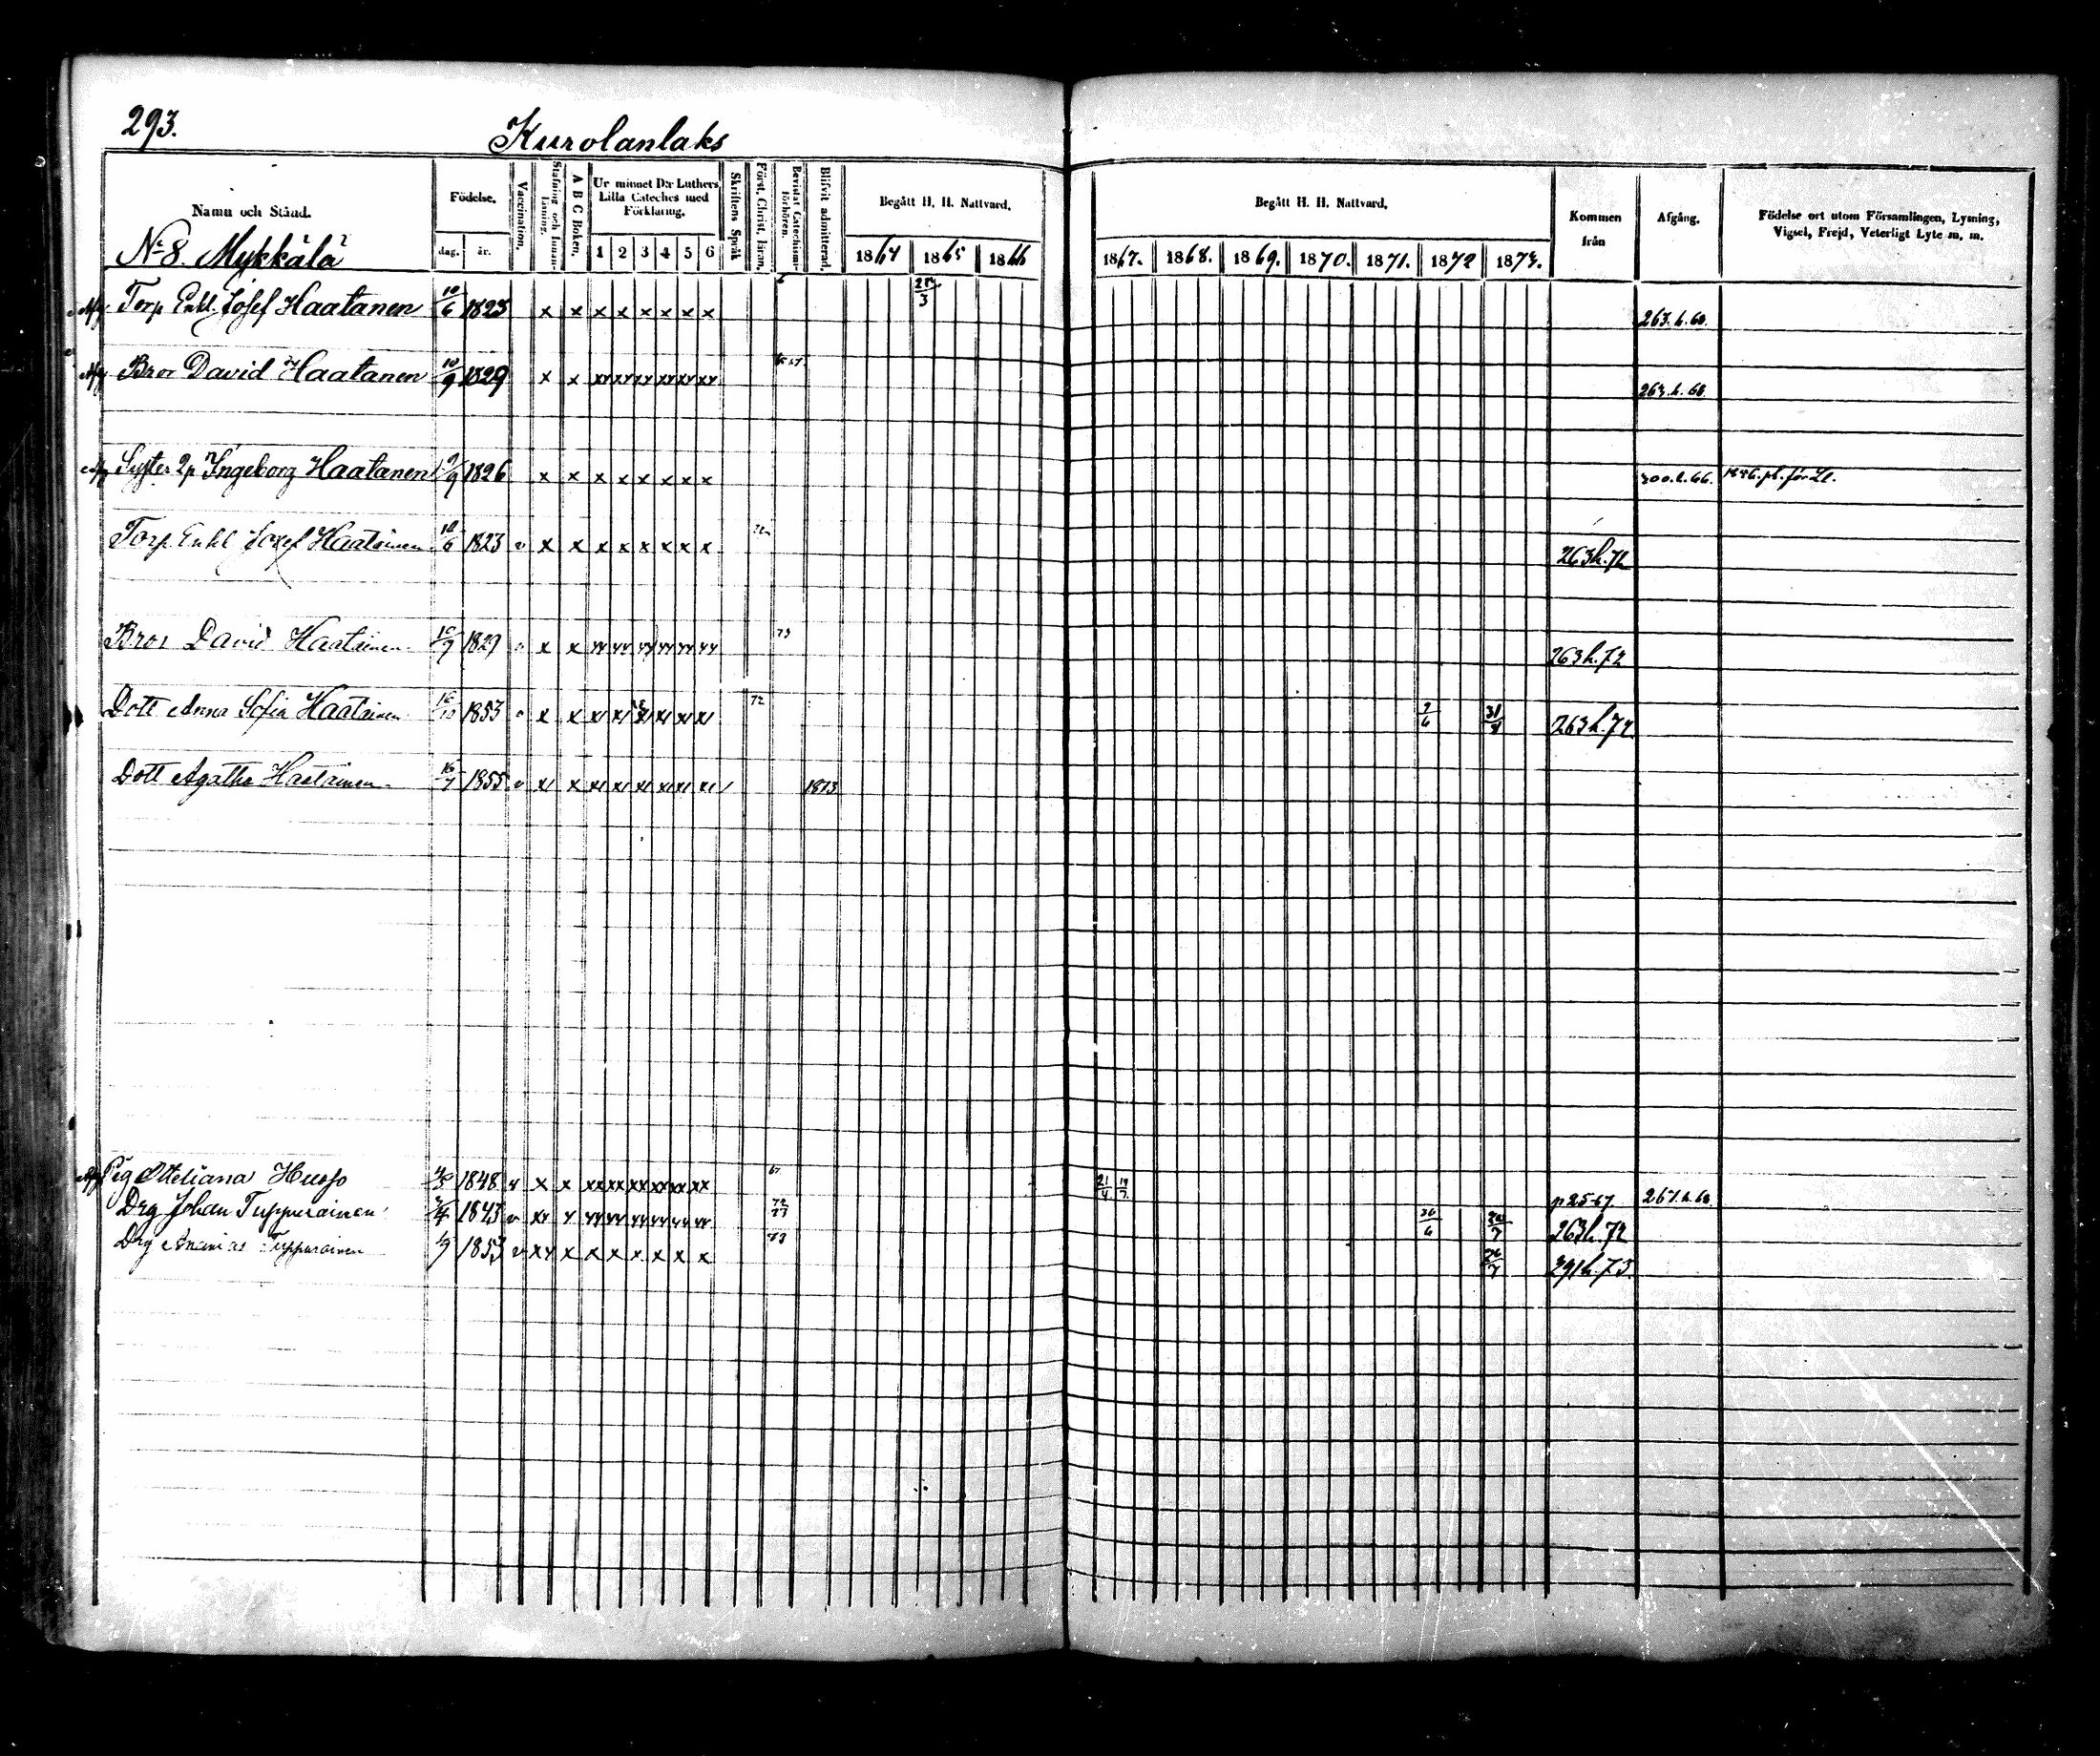 293.
Kurolanlaks
Namn och Stånd.
Födelse.
dag. år.
Vaccination.
Stafning och Innan-läsning.
A B C Boken.
Ur minnet D:r Luthers Lilla Cateches med Förklaring.
1 2 3 4 5 6
Skriftens Språk
Först. Christ. läran.
Bevistat Catechismi-förhören.
Blifvit admitterad.
Begått H. H. Nattvard.
1864 1865 1866
Begått H. H. Nattvard.
1867. 1868. 1869. 1870. 1871. 1872 1873.
Kommen från
Afgång.
Födelse ort utom Församlingen, Lysning, Vigsel, Frejd, Veterligt Lyte m. m.
No 8. Mykkälä
Afg. Torp. Enkl. Josef Haatanen 10/6 1823 x x x x x x x x 263.h.68.
Afg Bror David Haatanen 10/9 1829 x x xx xx xx xx xx xx 263.h.68.
Afg Syster Ingeborg Haatanen 9/9 1826 x x x x x x x x 300.h.66.
Torp. Enkl Josef Haatainen 10/6 1823 v x x x x x x x x 72 263h.72
Bror David Haatainen 10/9 1829 x x 73 263h.72
Dott Anna Sofia Haatainen 1853 x x 72 2/6 31/8 263h.72
Dott Agatha Haatainen 16/7 1855 1873
Afg Pig Otteliana Husso 1848 v x x xx xx xx xx xx xx 67 21/4 19/7 p 25 67. 267.h.68.
Drg Johan Tuppurainen 1843 72/73 30/6 263h.72
Drg Ananias Tuppurainen 1853 x x x x x x 73 26/7 391h.73.